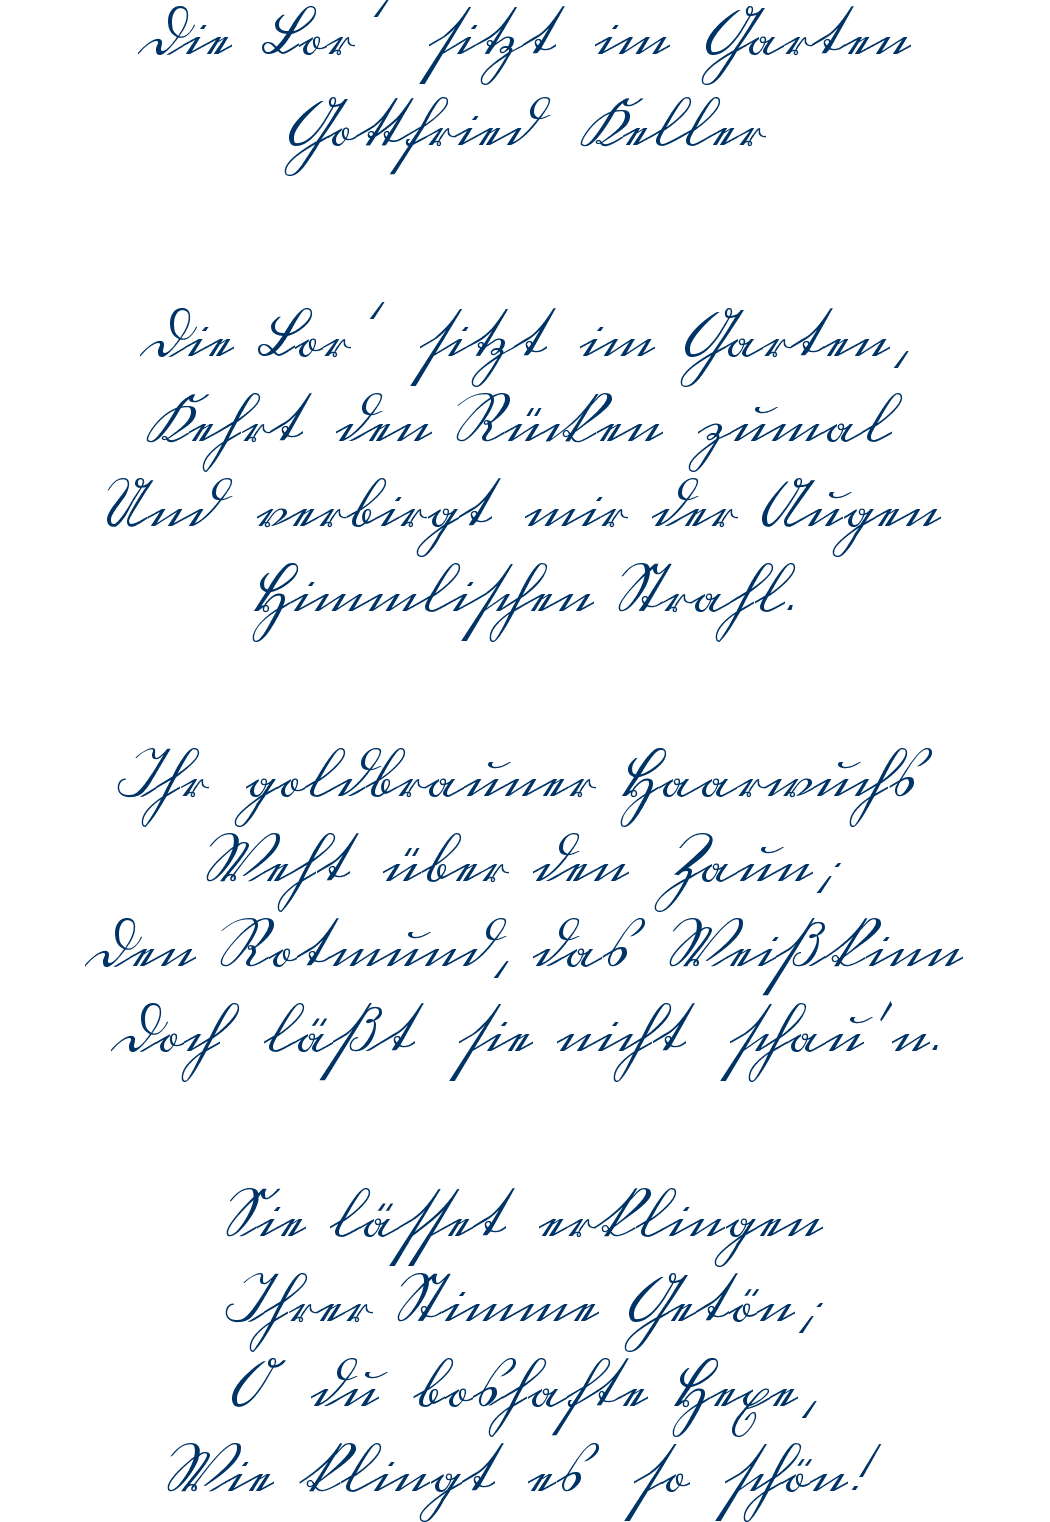 Die Lor' sitzt im Garten
Gottfried Keller
Die Lor' sitzt im Garten,
Kehrt den Rücken zumal
Und verbirgt mir der Augen
Himmlischen Strahl.
Ihr goldbrauner Haarwuchs
Weht über den Zaun;
Den Rotmund, das Weißkinn
Doch läßt sie nicht schau'n.
Sie lässet erklingen
Ihrer Stimme Getön;
O du boshafte Hexe,
Wie klingt es so schön!